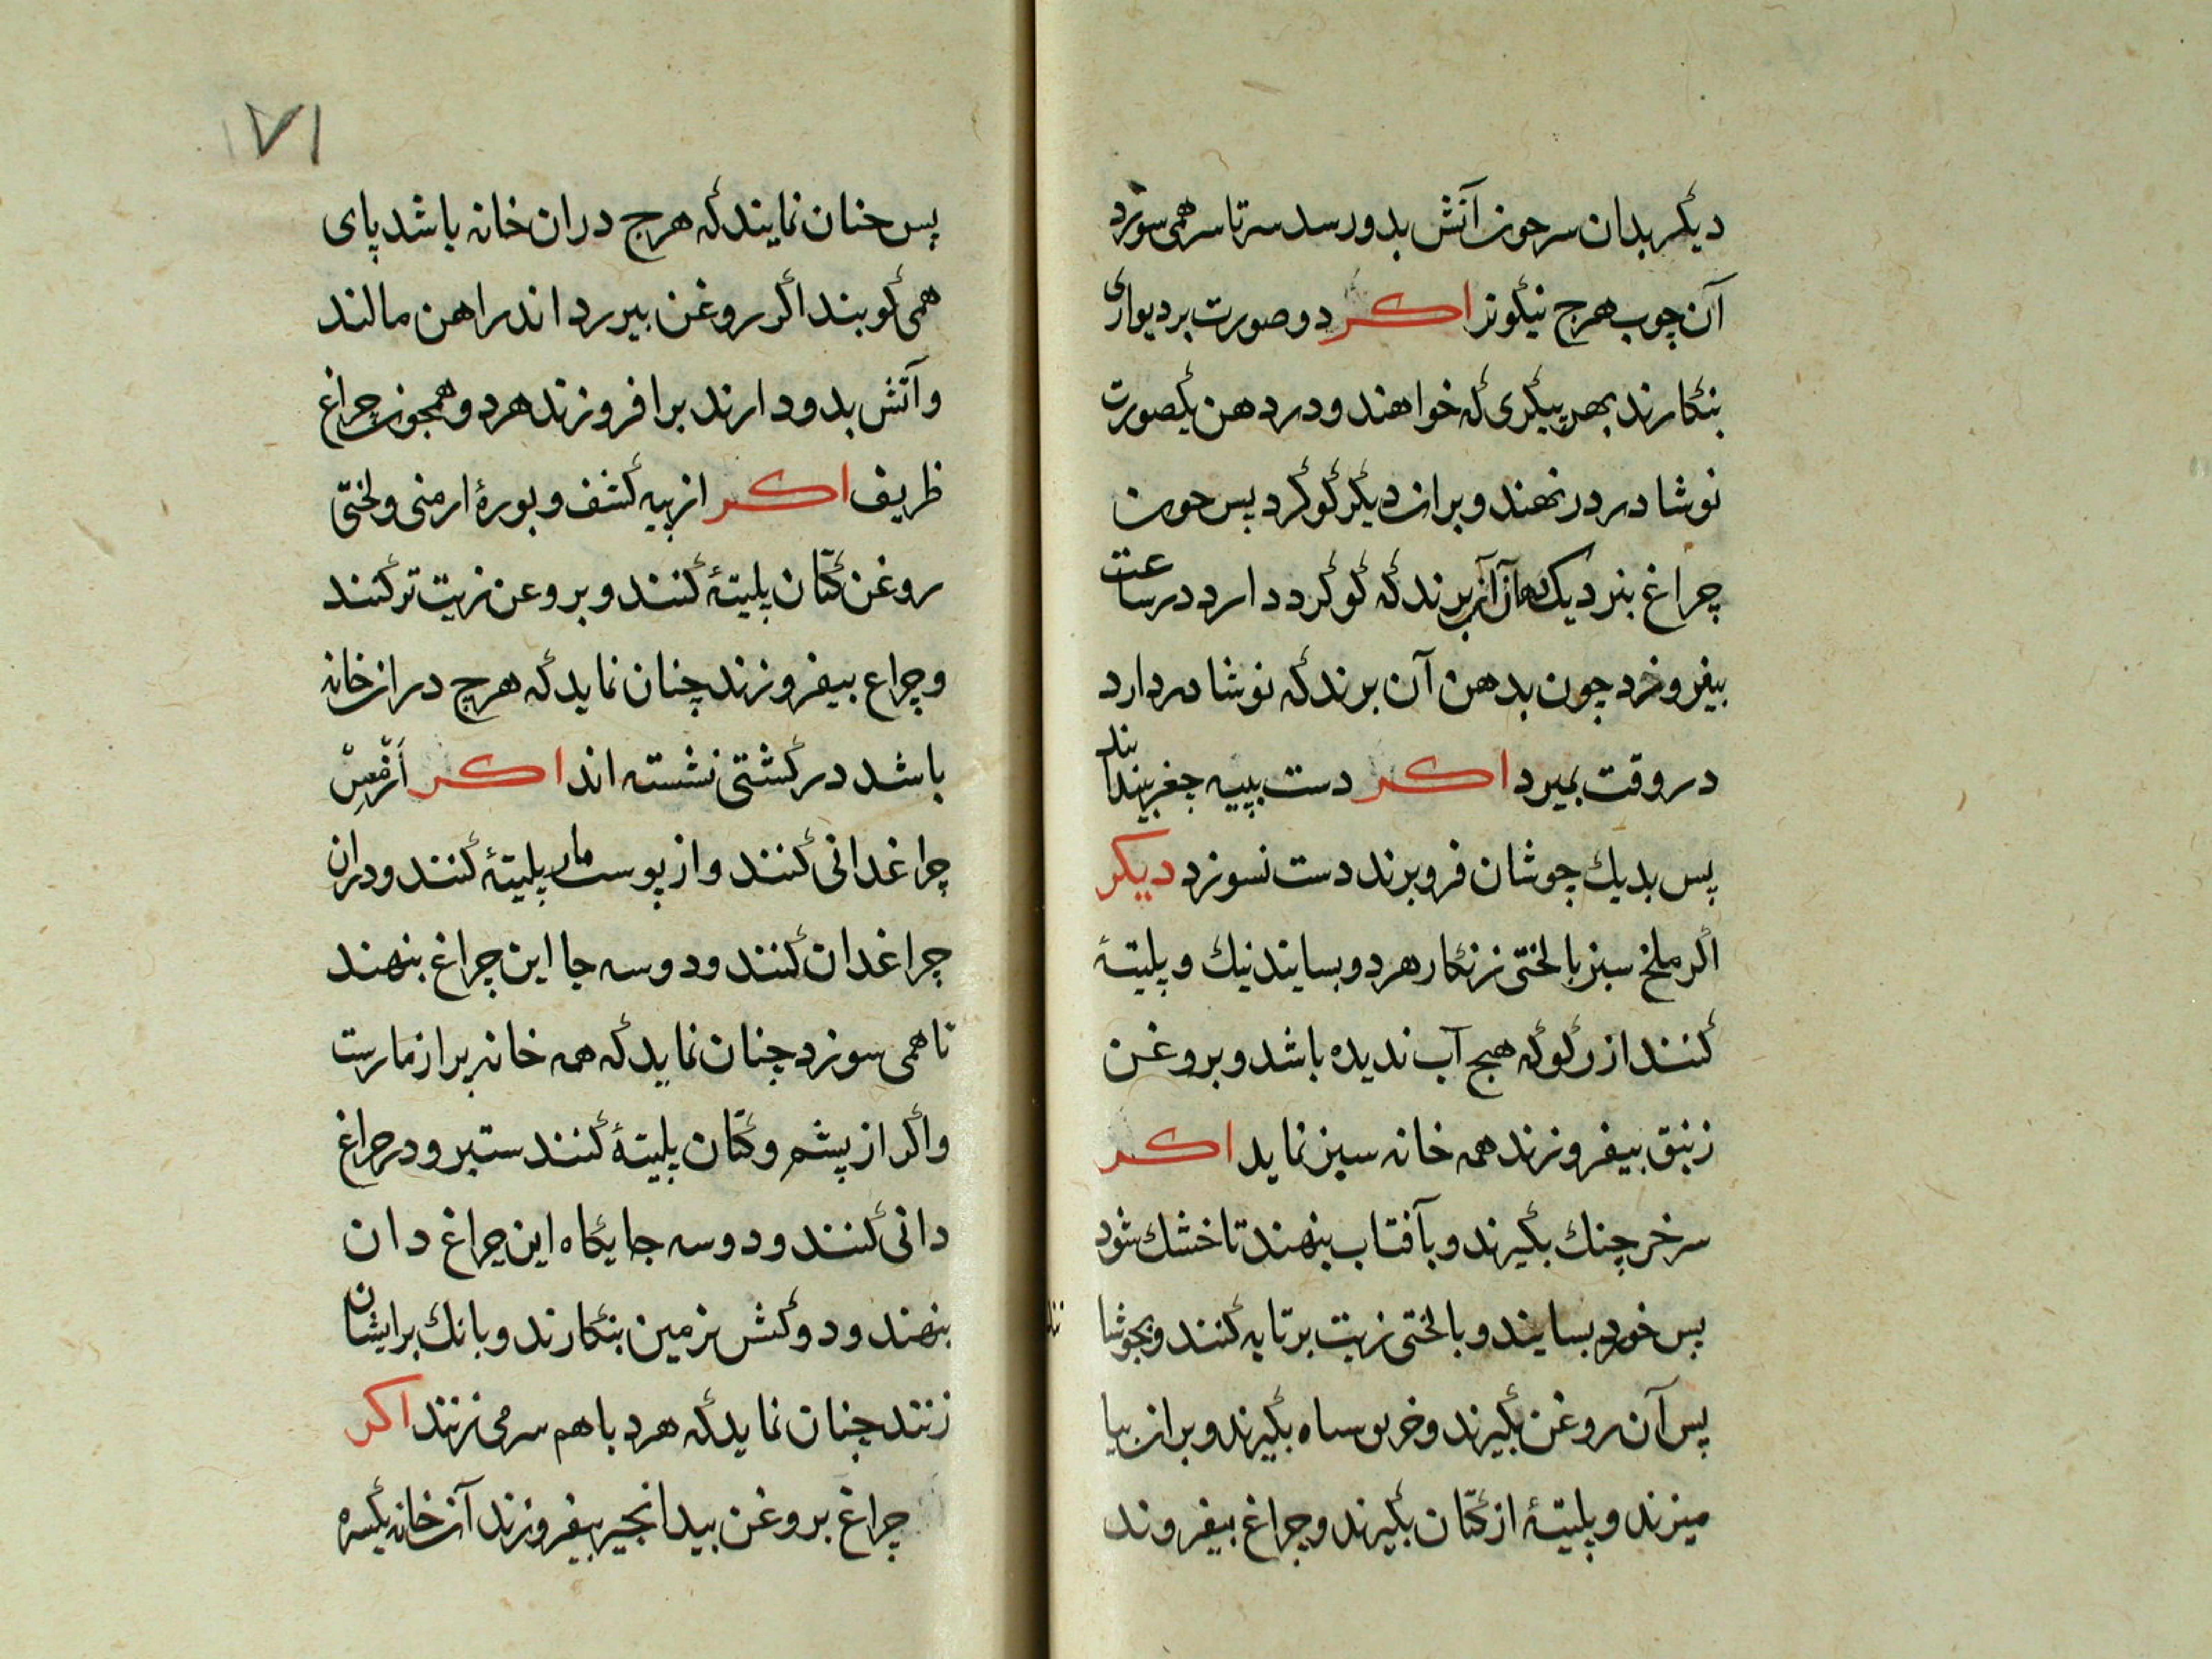 دیگر بدان سر چون آتش بدو رسد سر تا سر همی سوزد
آن چوب هرچ نیکوتر اکر دو صورت بر دیواری
بنگارند بهر پیکری که خواهند و در دهن یکصورت
نوشادر در نهند و بران دیگر گوگرد پس چون
چراغ بنزدیک دهان آن برند که گوگرد دارد در ساعت
بیفروزد چون بدهن آن برند که نوشادر دارد
در وقت بمیرد اکر دست بپیه جغر بیندایند
پس بدیك جوشان فرو برند دست نسوزد دیکر
اگر ملخ سبز با لختی زنگار هر دو بسایند نیك و پلیتۀ
کنند از رکو که هیج آب ندیده باشد و بروغن
زنبق بیفروزند همه خانه سبز نماید اکر
سر خرچنك بگیرند و بآفتاب بنهند تا خشك شود
پس خورد بسایند و با لختی زیت بر تابه کنند و بجوشا
پس آن روغن بگیرند و خربوساه بگیرند و بران بیا
میزند و پلیتۀ از کتّان بگیرند و چراغ بیفروند
۱۷۱
پس چنان نمایند که هرچ دران خانه باشد پای
همی کوبند اگر روغن بیررد اندر اهن مالند
و آتش بدو دارند برافروزند هر دو همچون چراغ
ظریف اکر از پیه کشف و بورۀ ارمنی و لختی
روغن کتّان پلیتۀ کنند و بروعن زیت تر کنند
و چراع بیفروزند چنان نماید که هرچ دران خانه
باشد در کشتی نشسته اند اکر از مسّ
چراغدانی کنند و از پوست مار پلیتۀ کنند و دران
چراغدان کنند و دو سه جا این چراغ بنهند
تا همی سوزد چنان نماید که همه خانه پر از مارست
و اگر از پشم و کتّان پلیتۀ کنند ستبر و در چراغ
دانی کنند و دو سه جایگاه این چراغ دان
بنهند و دو کش بزمین بنگارند و بانك بر ایشان
زنند چنان نماید که هر دو با هم سر می زنند اکر
چراغ بروغن بیدانجیر بیفروزند آن خانه یکسره